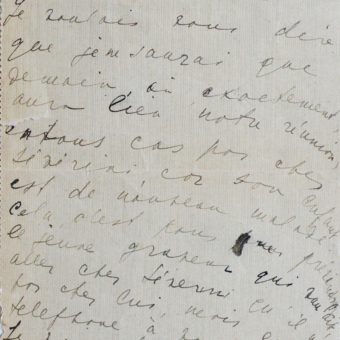 Je voulais vous dire
que je ne saurai que
demain, où exactement,
aura lieu notre réunion,
en tous cas pas chez
Séverini car son enfant
est de nouveau malade.
Cela, c'est pour
le jeune graveur qui voudrait
aller chez Séverini
pas chez lui, mais
téléphone à
Je